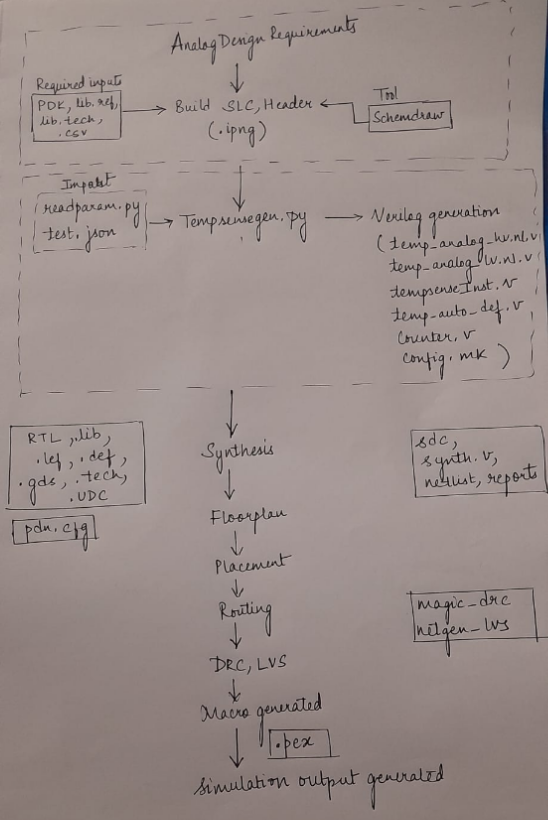 Analog Design Requirements
Required inputs
PDK, lib.ref,
lib.tech,
.csv
Build SLC, Header
(.ipng)
Tool
Schemdraw
readparam.py
test.json
Tempsensegen.py
Verilog generation
(temp_analog_hv.nl.v
temp_analog_lv.nl.v
tempsenseInst.v
temp_auto_def.v
Counter.v
config.mk )
RTL, .lib,
.lef, .def,
.gds, .tech,
pdn.cfg
Synthesis
sdc,
synth.v,
netlist, reports
Floorplan
Placement
Routing
magic_drc
netgen_lvs
DRC, LVS
Macro generated
.pex
Simulation output generated